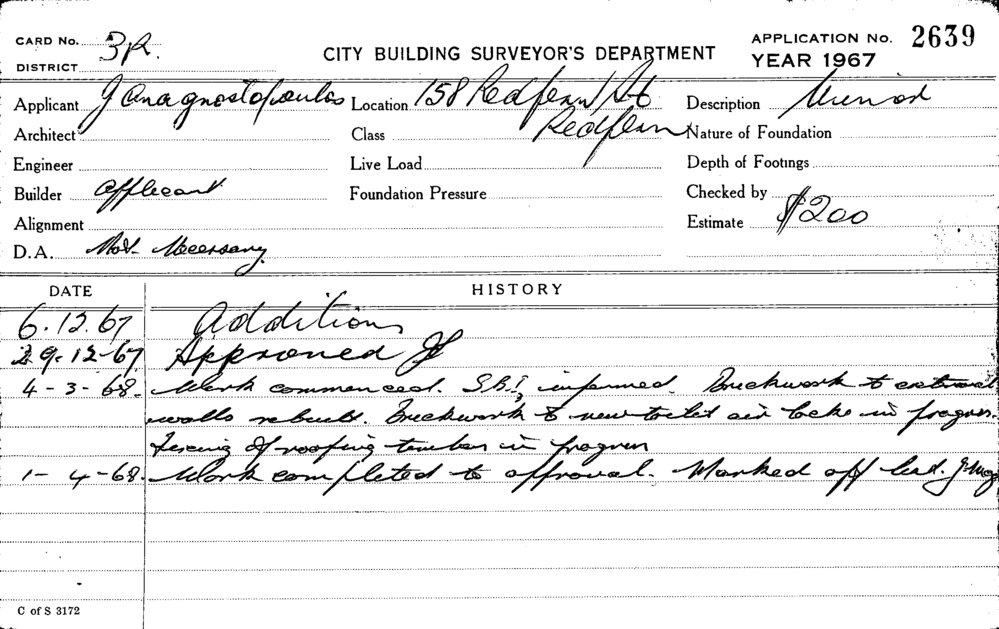 CARD No. 3R.
DISTRICT
CITY BUILDING SURVEYOR'S DEPARTMENT
APPLICATION No. 2639
YEAR 1967
Applicant J Anagnostopoulos Location 158 Redfern St Redfern Description Minor
Architect Class Nature of Foundation
Engineer Live Load Depth of Footings
Builder Applicant Foundation Pressure Checked by
Alignment Estimate $200
D.A. Not Necessary
DATE HISTORY
6.12.67 Additions
29-12-67 Approved
4-3-68. Work commenced. informed. Brickwork to external
walls rebuilt. Brickwork to new toilet air locks in progress.
Fixing of roofing timber in progress
1-4-68. Work completed to approval. Marked off
C of S 3172